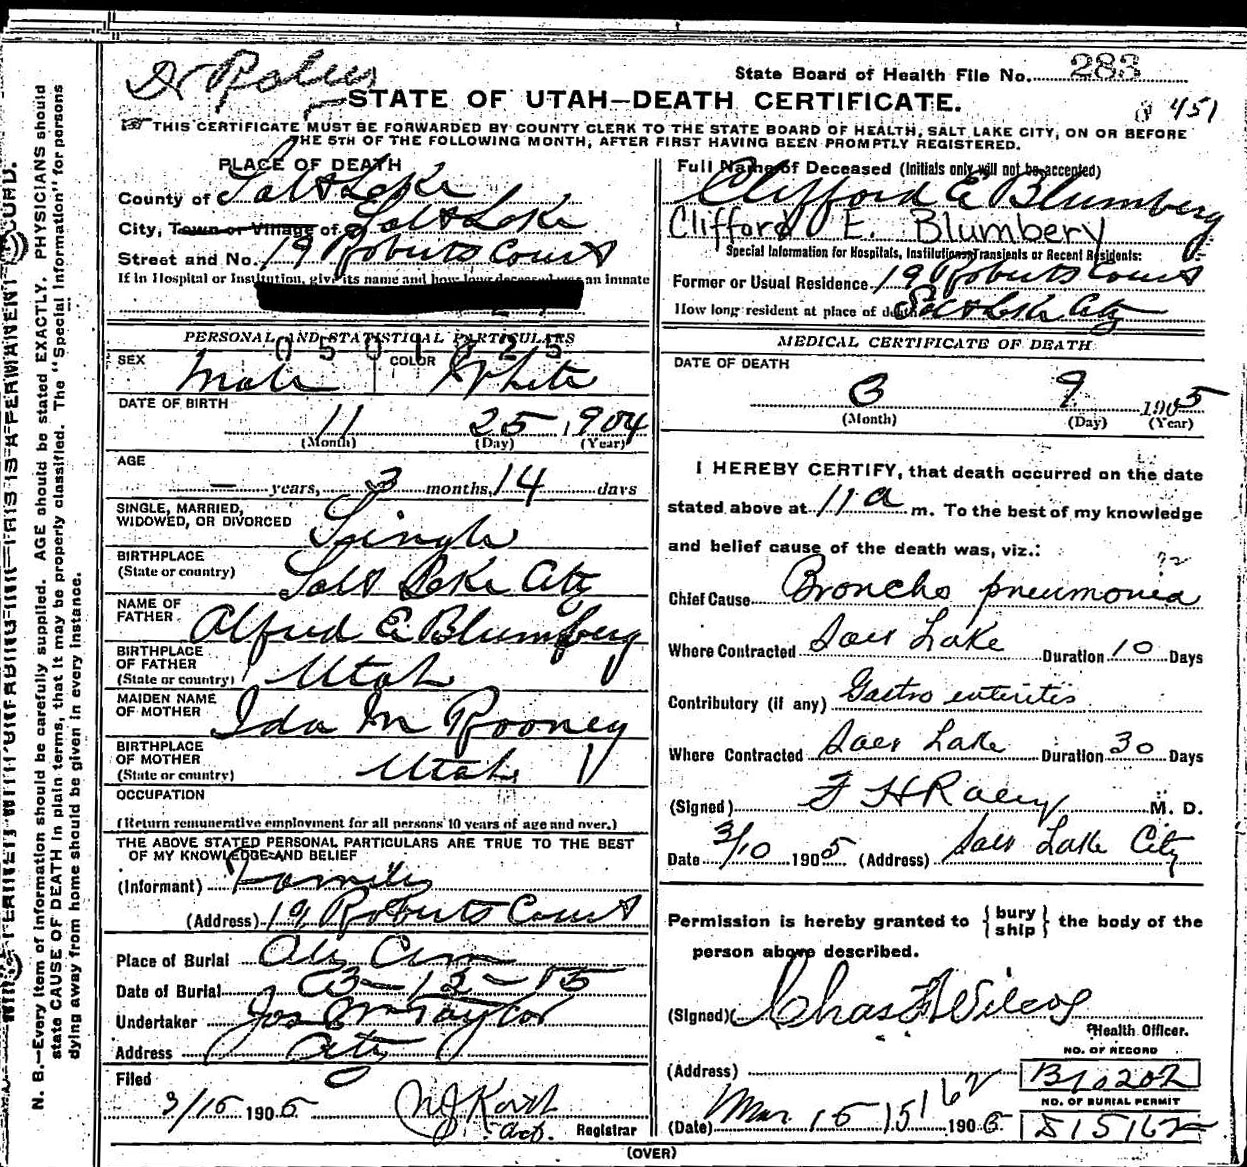 Dr
State Board of Health File No. 283
STATE OF UTAH—DEATH CERTIFICATE.
451
THIS CERTIFICATE MUST BE FORWARDED BY COUNTY CLERK TO THE STATE BOARD OF HEALTH, SALT LAKE CITY, ON OR BEFORE
THE 5TH OF THE FOLLOWING MONTH, AFTER FIRST HAVING BEEN PROMPTLY REGISTERED.
N. B.—Every item of information should be carefully supplied. AGE should be stated EXACTLY. PHYSICIANS should
state CAUSE OF DEATH in plain terms, that it may be properly classified. The "Special Information" for persons
dying away from home should be given in every instance.
PLACE OF DEATH
County of Salt Lake
City, Town or Village of Salt Lake
Street and No. 19 Roberts Court
If in Hospital or Institution, give its name and how long an inmate
PERSONAL AND STATISTICAL PARTICULARS
SEX Male COLOR White
DATE OF BIRTH
11 25 1904
(Month) (Day) (Year)
AGE
— years, 3 months, 14 days
SINGLE, MARRIED,
WIDOWED, OR DIVORCED Single
BIRTHPLACE
(State or country) Salt Lake City
NAME OF
FATHER Alfred E Blumberg
BIRTHPLACE
OF FATHER
(State or country) Utah
MAIDEN NAME
OF MOTHER Ida M Rooney
BIRTHPLACE
OF MOTHER
(State or country) Utah
OCCUPATION
(Return remunerative employment for all persons 10 years of age and over.)
THE ABOVE STATED PERSONAL PARTICULARS ARE TRUE TO THE BEST
OF MY KNOWLEDGE AND BELIEF
(Informant) Family
(Address) 19 Roberts Court
Place of Burial City Cem
Date of Burial 3-12-05
Undertaker Jos Wm Taylor
Address City
Filed
3/15 1905
Registrar
Full Name of Deceased (Initials only will not be accepted)
Clifford E Blumberg
Clifford E. Blumbery
Special Information for Hospitals, Institutions, Transients or Recent Residents:
Former or Usual Residence 19 Roberts Court
How long resident at place of death Salt Lake City
MEDICAL CERTIFICATE OF DEATH
DATE OF DEATH
3 9 1905
(Month) (Day) (Year)
I HEREBY CERTIFY, that death occurred on the date
stated above at 11 a m. To the best of my knowledge
and belief cause of the death was, viz.:
Chief Cause Broncho pneumonia
Where Contracted Salt Lake Duration 10 Days
Contributory (if any) Gastro enteritis
Where Contracted Salt Lake Duration 30 Days
(Signed) F H M. D.
Date 3/10 1905 (Address) Salt Lake City
Permission is hereby granted to {bury ship} the body of the
person above described.
(Signed) Chas F Wilcox
Health Officer.
(Address)
NO. OF RECORD
B10202
NO. OF BURIAL PERMIT
(Date) Mar 15 1905
(OVER)